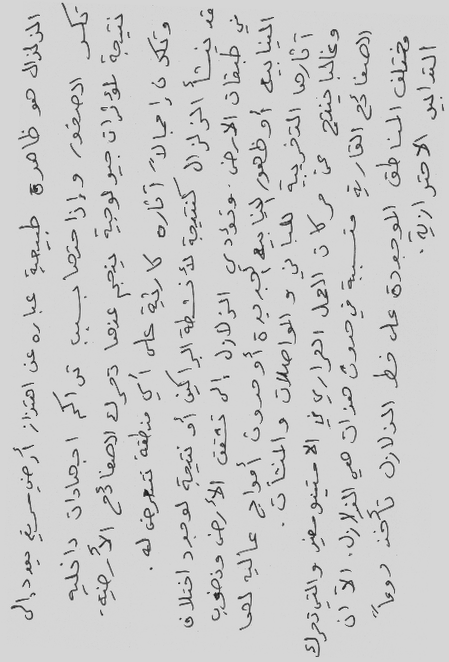 الزلزال هو ظاهرة طبيعية عباره عن اهتزاز أرضي سريع يعود إلى
تكسر الصخور وإزاحتها بسبب تراكم اجهادات داخلية
نتيجة لمؤثرات جيولوجية ينجم عنها تحرك الصفائح الأرضية.
وتكون إجمالاً آثاره كارثية على أي منطقة تتعرض له.
قد تنشأ الزلازل كنتيجة لأنشطة البراكين أو نتيجة لوجود اختلاف
في طبقات الأرض. وتؤدي الزلازل إلى تشقق الأرض ونضوب
الينابيع أو ظهور لينابيع جديدة أو حدوث أمواج عالية لها
آثارها التخريبية للمباني والمواصلات والمنشآت.
وغالبا ينتج عن حركات الحمل الحراري في الاستينوسفير والتي تحرك
الصفائح القارية متسببة في حدوث هزات هي الزلازل. الا أن
مختلف المناطق الموجودة على خط الزلازل تأخذ دوماً
التدابير الاحترازية.